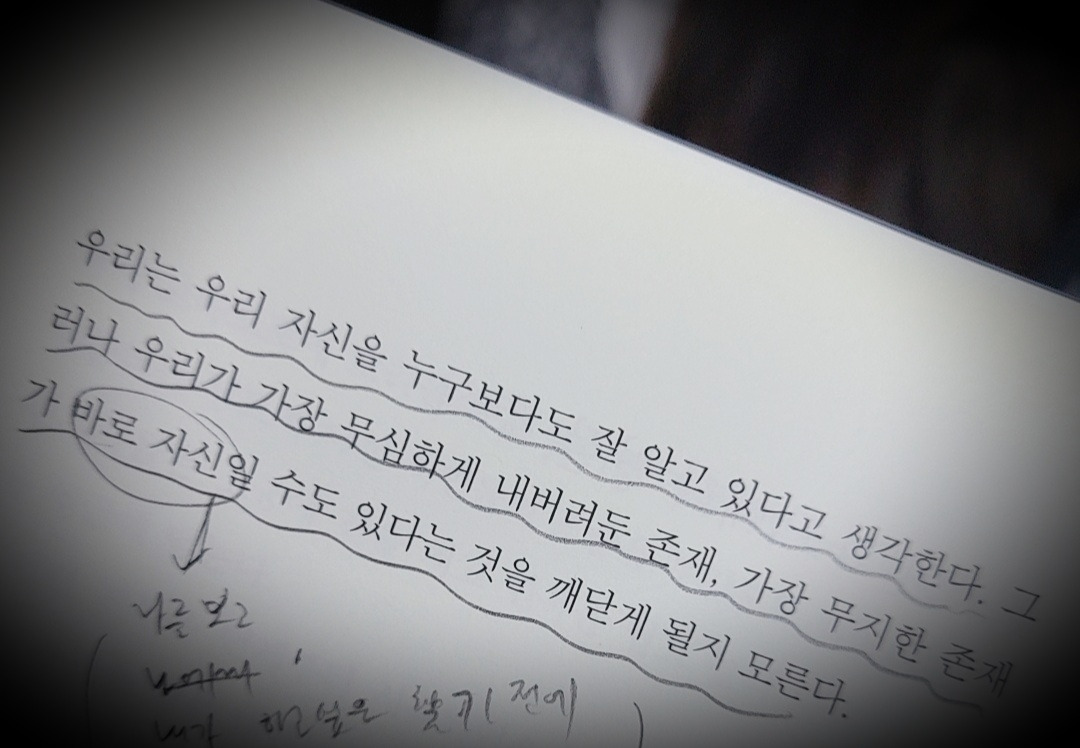 우리는 우리 자신을 누구보다도 잘 알고 있다고 생각한다. 그
러나 우리가 가장 무심하게 내버려둔 존재, 가장 무지한 존재
가 바로 자신일 수도 있다는 것을 깨닫게 될지 모른다.
나를 보고
내가 하고 싶은 찾기 전에